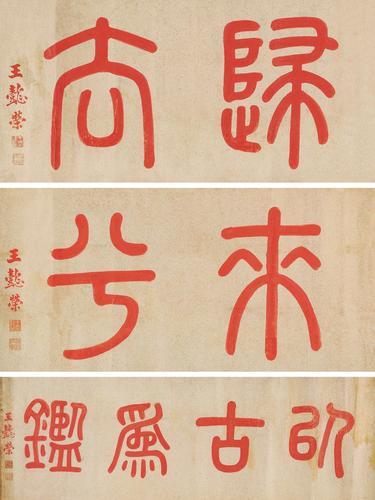 歸去
王懿榮
來兮
王懿榮
以古為鑑
王懿榮